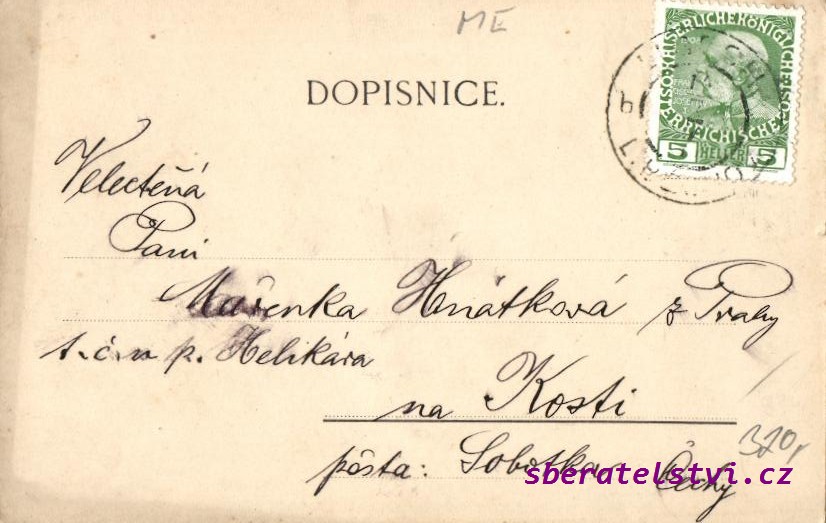 ME
DOPISNICE.
K.K. ÖSTERREICHISCHE POST
5 HELLER 5
Velectěná
Paní
Mařenka Hnátková z Prahy
t.č. u p. Helikára
na Kosti
pošta: Sobotka Čechy
320,
sberatelstvi.cz